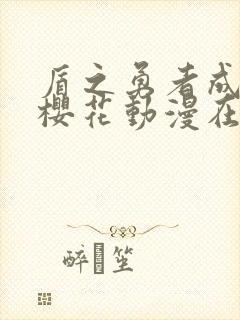 盾之勇者成
櫻花動漫在
醉 坐